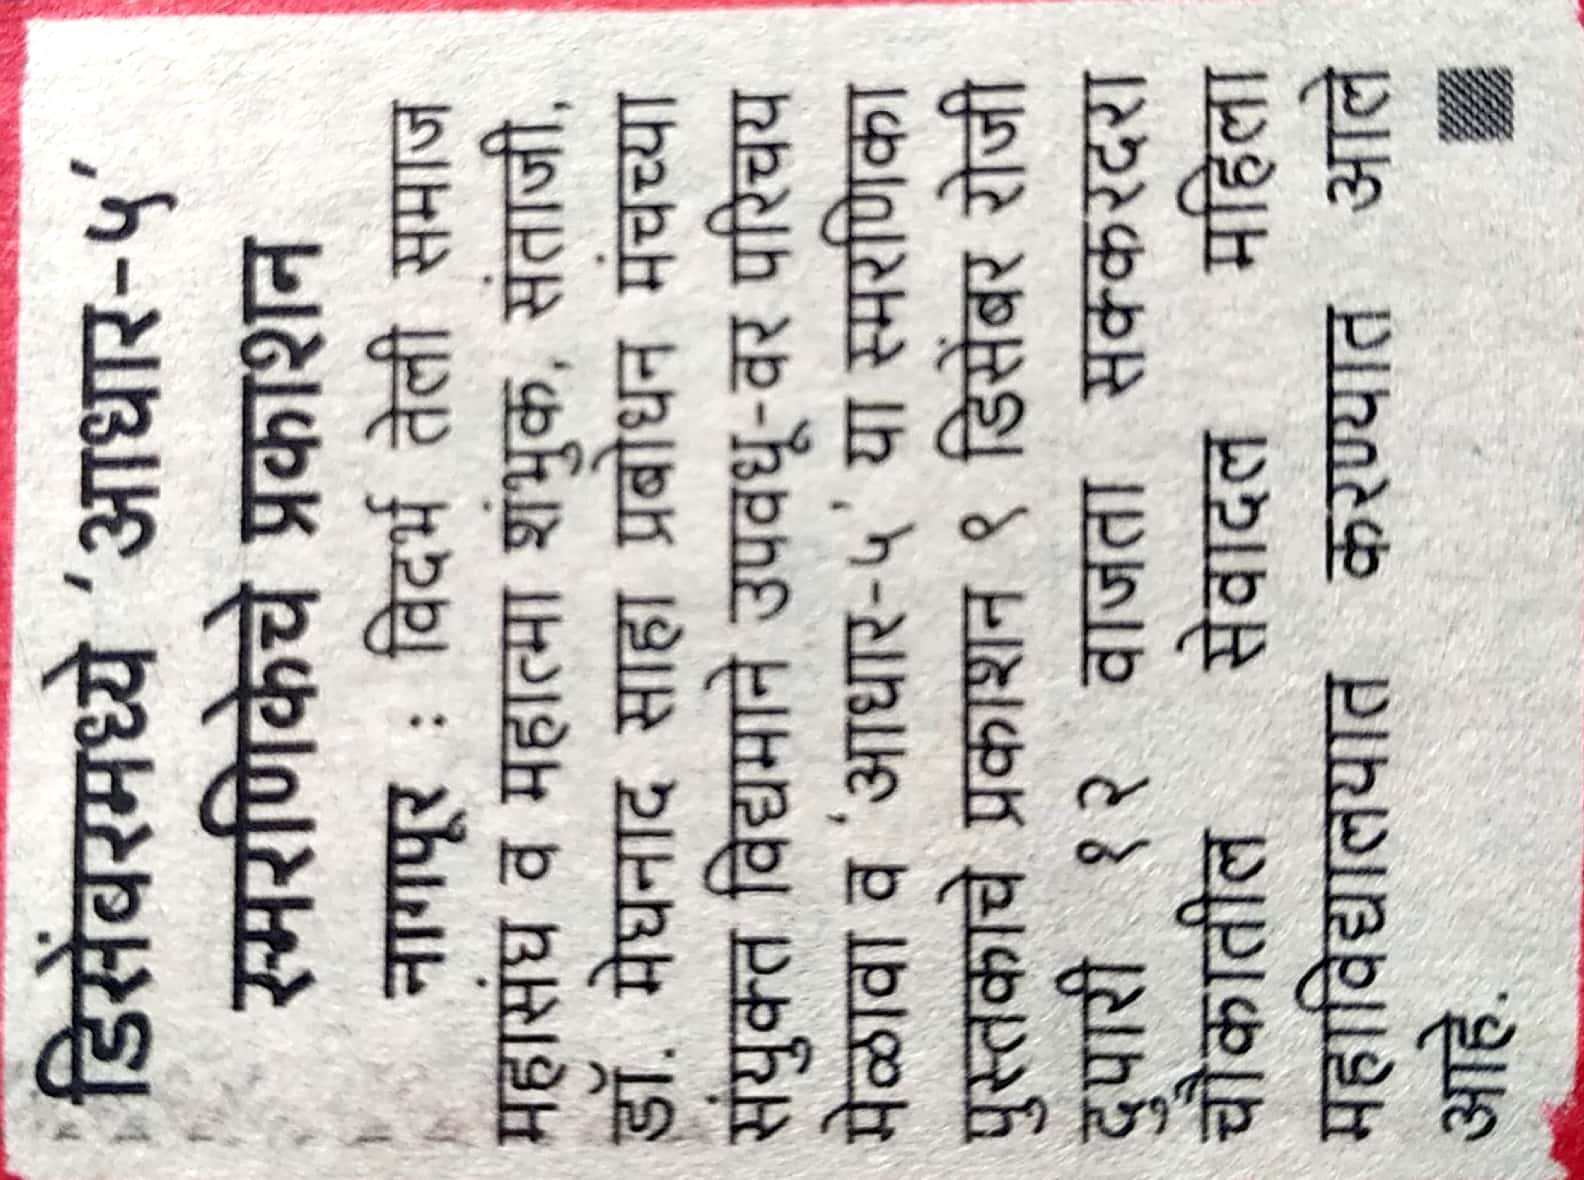 डिसेंबरमध्ये 'आधार-५'
स्मरणिकेचे प्रकाशन
नागपूर : विदर्भ तेली समाज
महासंघ व महात्मा शंभुक, संताजी,
डॉ. मेघनाद साहा प्रबोधन मंचच्या
संयुक्त विद्यमाने उपवधू-वर परिचय
मेळावा व 'आधार-५' या स्मरणिका
पुस्तकाचे प्रकाशन १ डिसेंबर रोजी
दुपारी १२ वाजता सक्करदरा
चौकातील सेवादल महिला
महाविद्यालयात करण्यात आले
आहे.